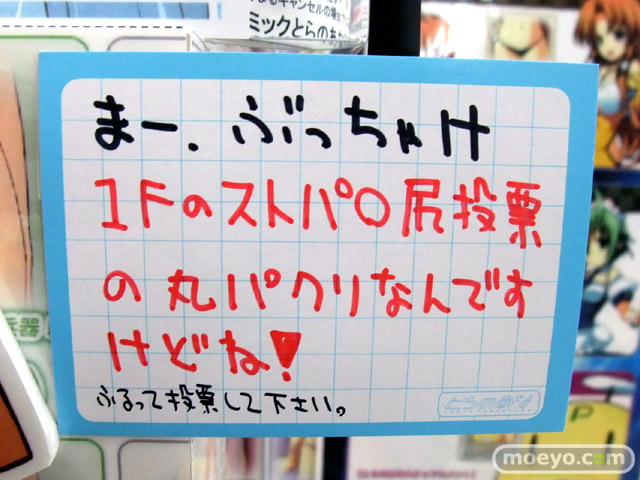 なるキャンセルの場合
ミックとらのあな
まー、ぶっちゃけ
1Fのストパロ尻投票
の丸パクリなんです
けどね!
ふるって投票して下さい。
とらのあな
兵器
P
moeyo.com